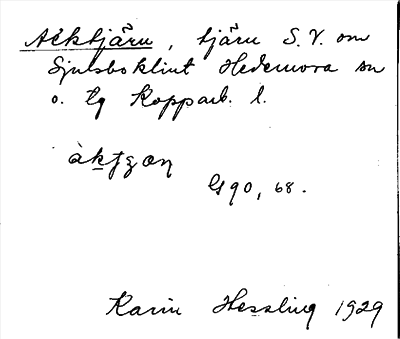 Acktjärn, tjärn S.V. om
Sjulsboklint Hedemora sn
o. tg Kopparb. l.
àktʒæɳ
G 90, 68.
Karin Hessling 1929